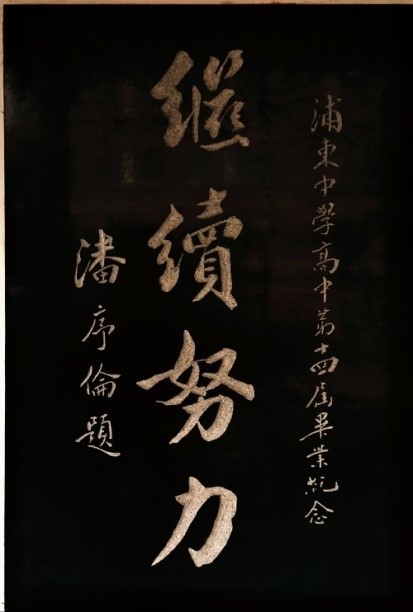 浦東中學高中第十四届畢業紀念
繼續努力
潘序倫題